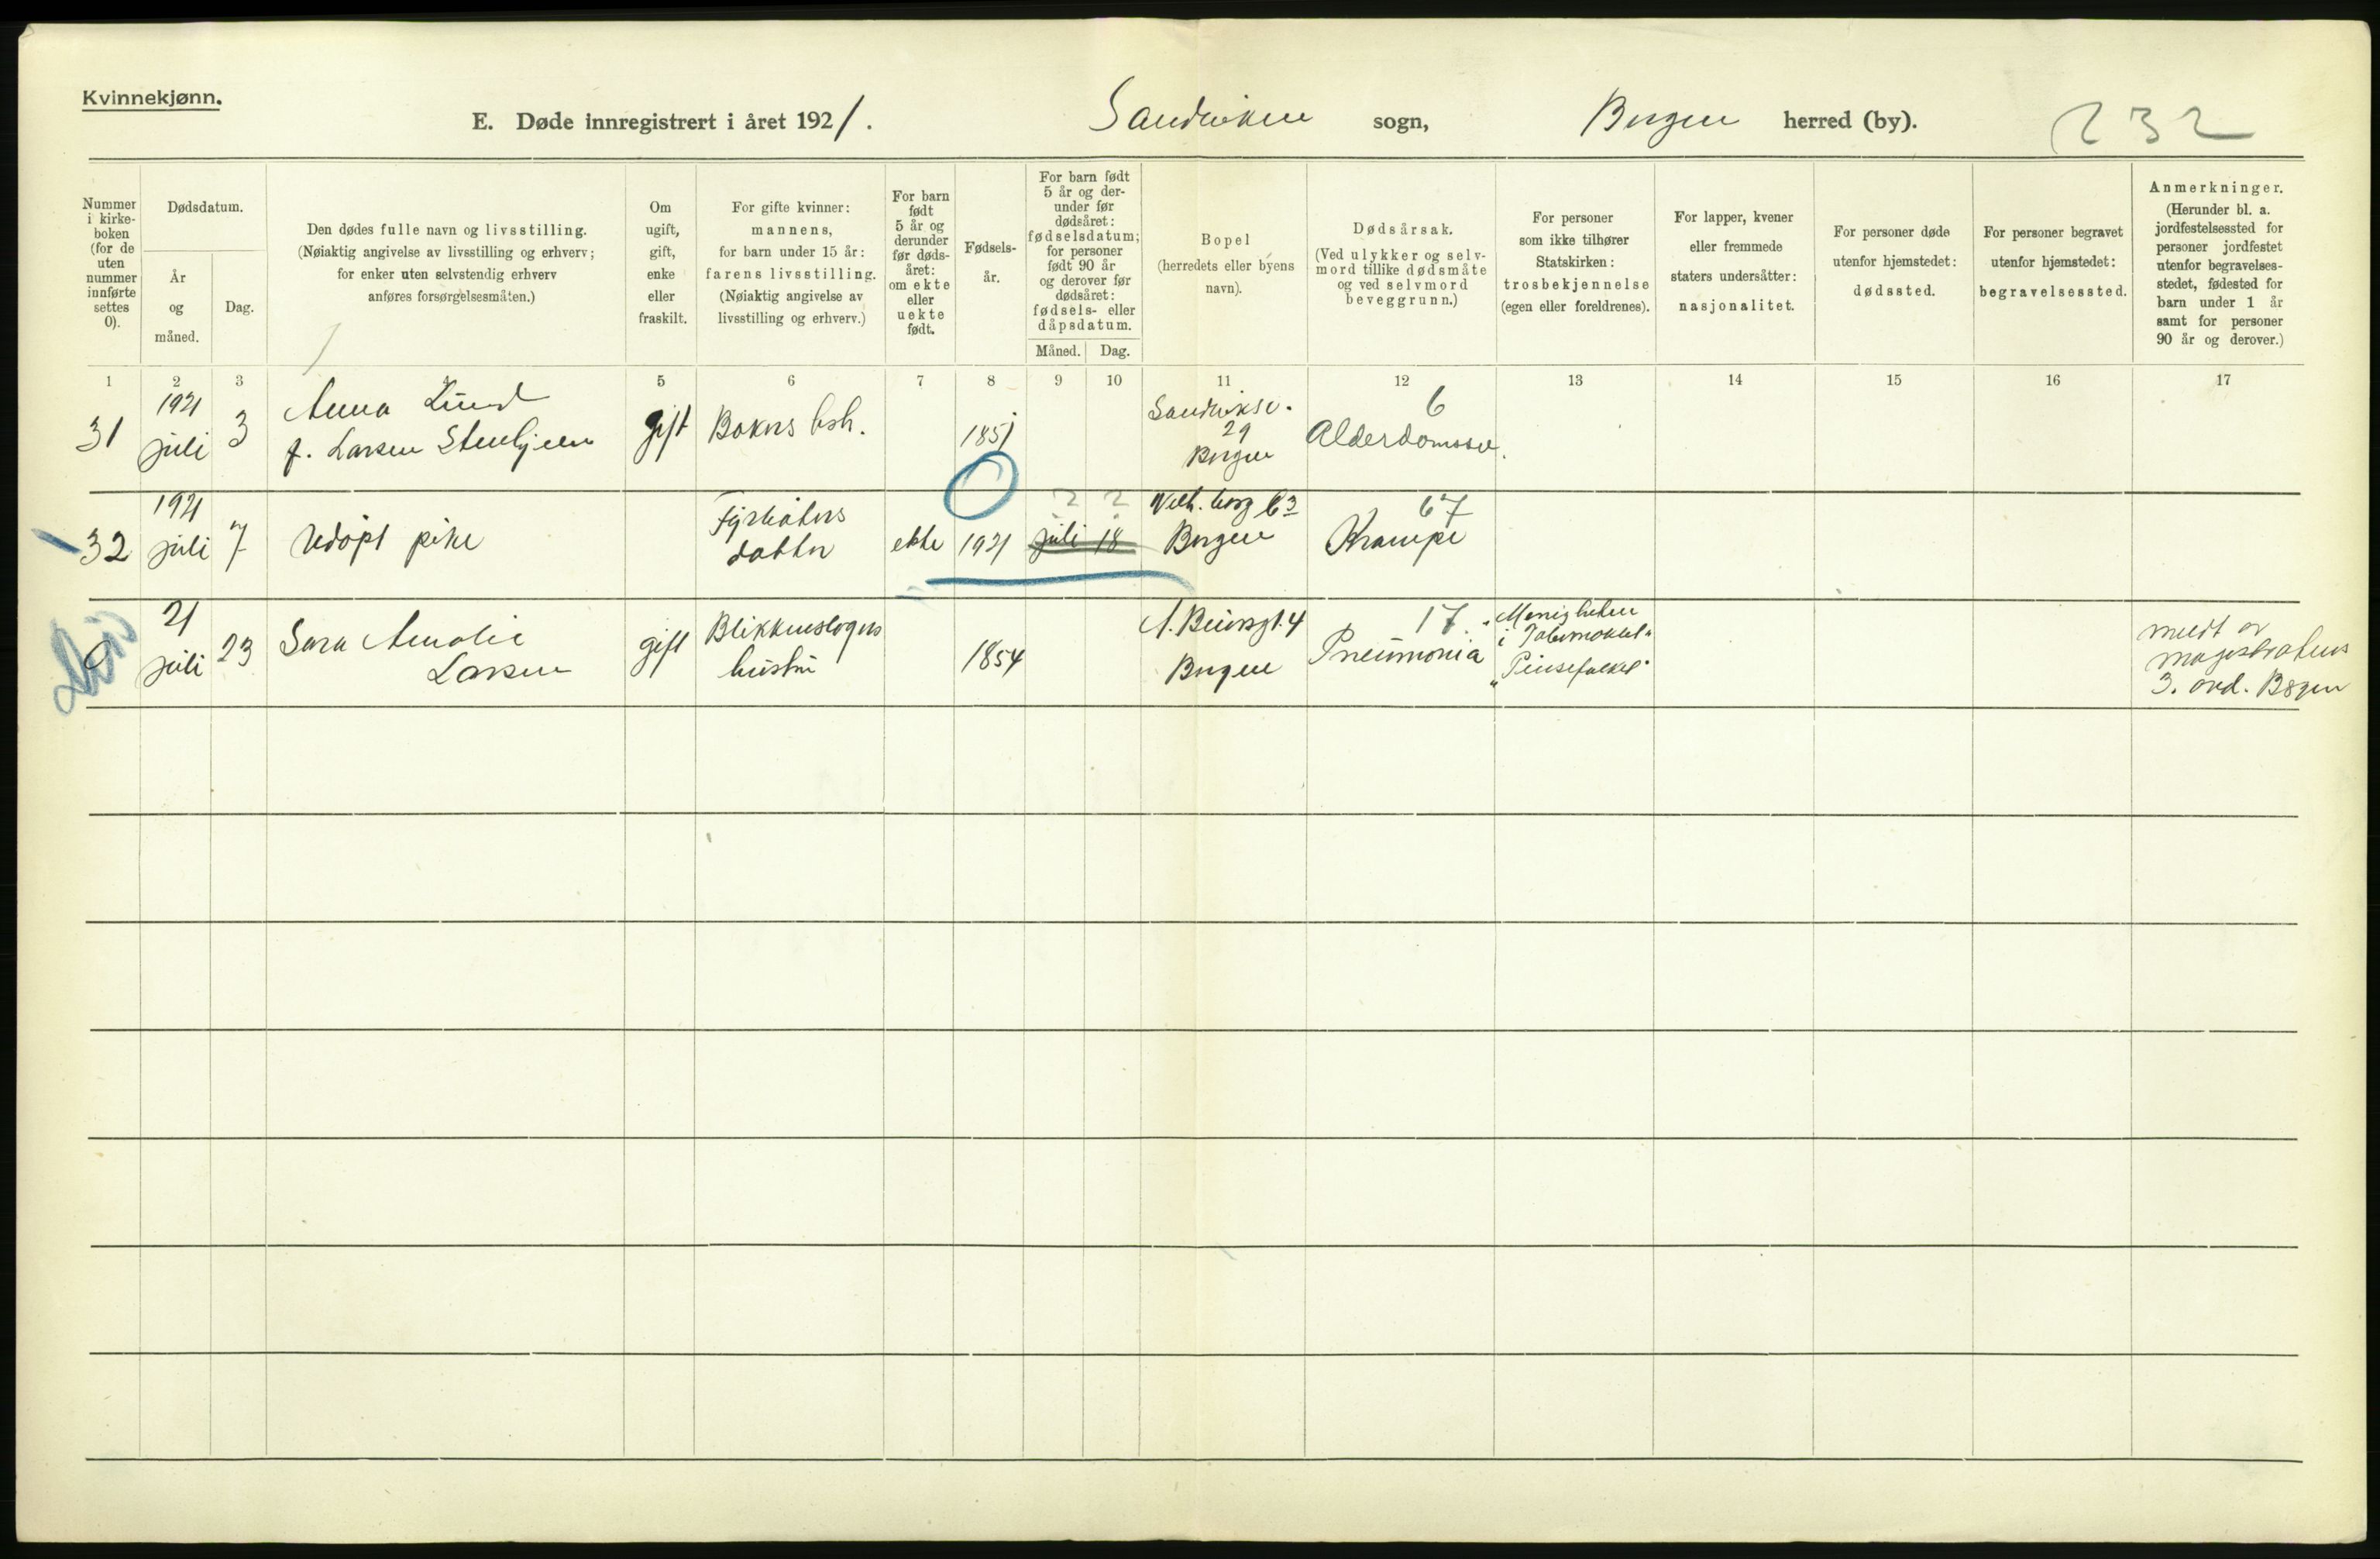 Kvinnekjønn.
E. Døde innregistrert i året 1921. Sandviken sogn, Bergen herred (by). 232
Nummer i kirke-boken (for de uten nummer innførte settes 0).
Dødsdatum.
År og måned.
Dag.
Den dødes fulle navn og livsstilling.
(Nøiaktig angivelse av livsstilling og erhverv;
for enker uten selvstendig erhverv
anføres forsørgelsesmåten.)
Om ugift, gift, enke eller fraskilt.
For gifte kvinner:
mannens,
for barn under 15 år:
farens livsstilling.
(Nøiaktig angivelse av
livsstilling og erhverv.)
For barn født 5 år og derunder før døds-året: om ekte eller uekte født.
Fødsels-år.
For barn født 5 år og der-under før dødsåret: fødselsdatum; for personer født 90 år og derover før dødsåret: fødsels- eller dåpsdatum.
Måned. Dag.
Bopel
(herredets eller byens
navn).
Dødsårsak.
(Ved ulykker og selv-
mord tillike dødsmåte
og ved selvmord
beveggrunn.)
For personer
som ikke tilhører
Statskirken:
trosbekjennelse
(egen eller foreldrenes).
For lapper, kvener
eller fremmede
staters undersåtter:
nasjonalitet.
For personer døde
utenfor hjemstedet:
dødssted.
For personer begravet
utenfor hjemstedet:
begravelsessted.
Anmerkninger.
(Herunder bl. a.
jordfestelsessted for
personer jordfestet
utenfor begravelses-
stedet, fødested for
barn under 1 år
samt for personer
90 år og derover.)
1 2 3 4 5 6 7 8 9 10 11 12 13 14 15 16 17
31
1921
juli
3
Anna Lund
f. Larsen
gift
Bakers hstr.
1851
Sandviksv.
29
Bergen
6
Alderdomssv.
32
1921
juli
7
Udöpt pike
Fyrbøters
datter
ekte
1921
2 2
juli 18
63
Bergen
67
Krampe
0
21
juli
23
Sara Amalie
Larsen
gift
Blikkenslagers
hustru
1854
4
Bergen
17.
Pneumonia
"Menigheten
i Tabernaklet"
"Pinsefolket"
meldt av
magistratens
3. avd. Bergen